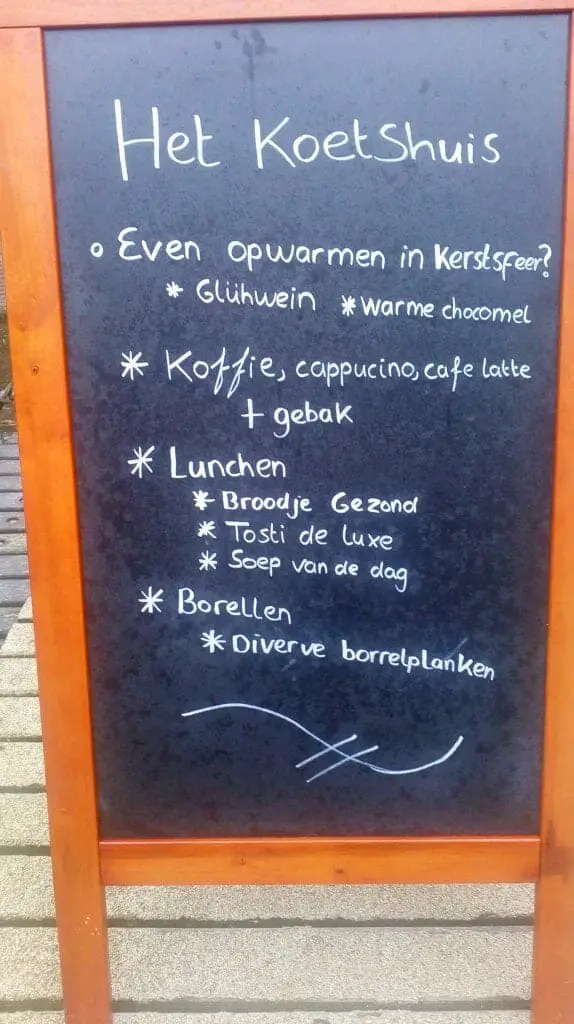 Het Koetshuis
o Even opwarmen in Kerstsfeer?
* Glühwein * Warme chocomel
* Koffie, cappucino, cafe latte
+ gebak
* Lunchen
* Broodje Gezond
* Tosti de luxe
* Soep van de dag
* Borellen
* Diverve borrelplanken